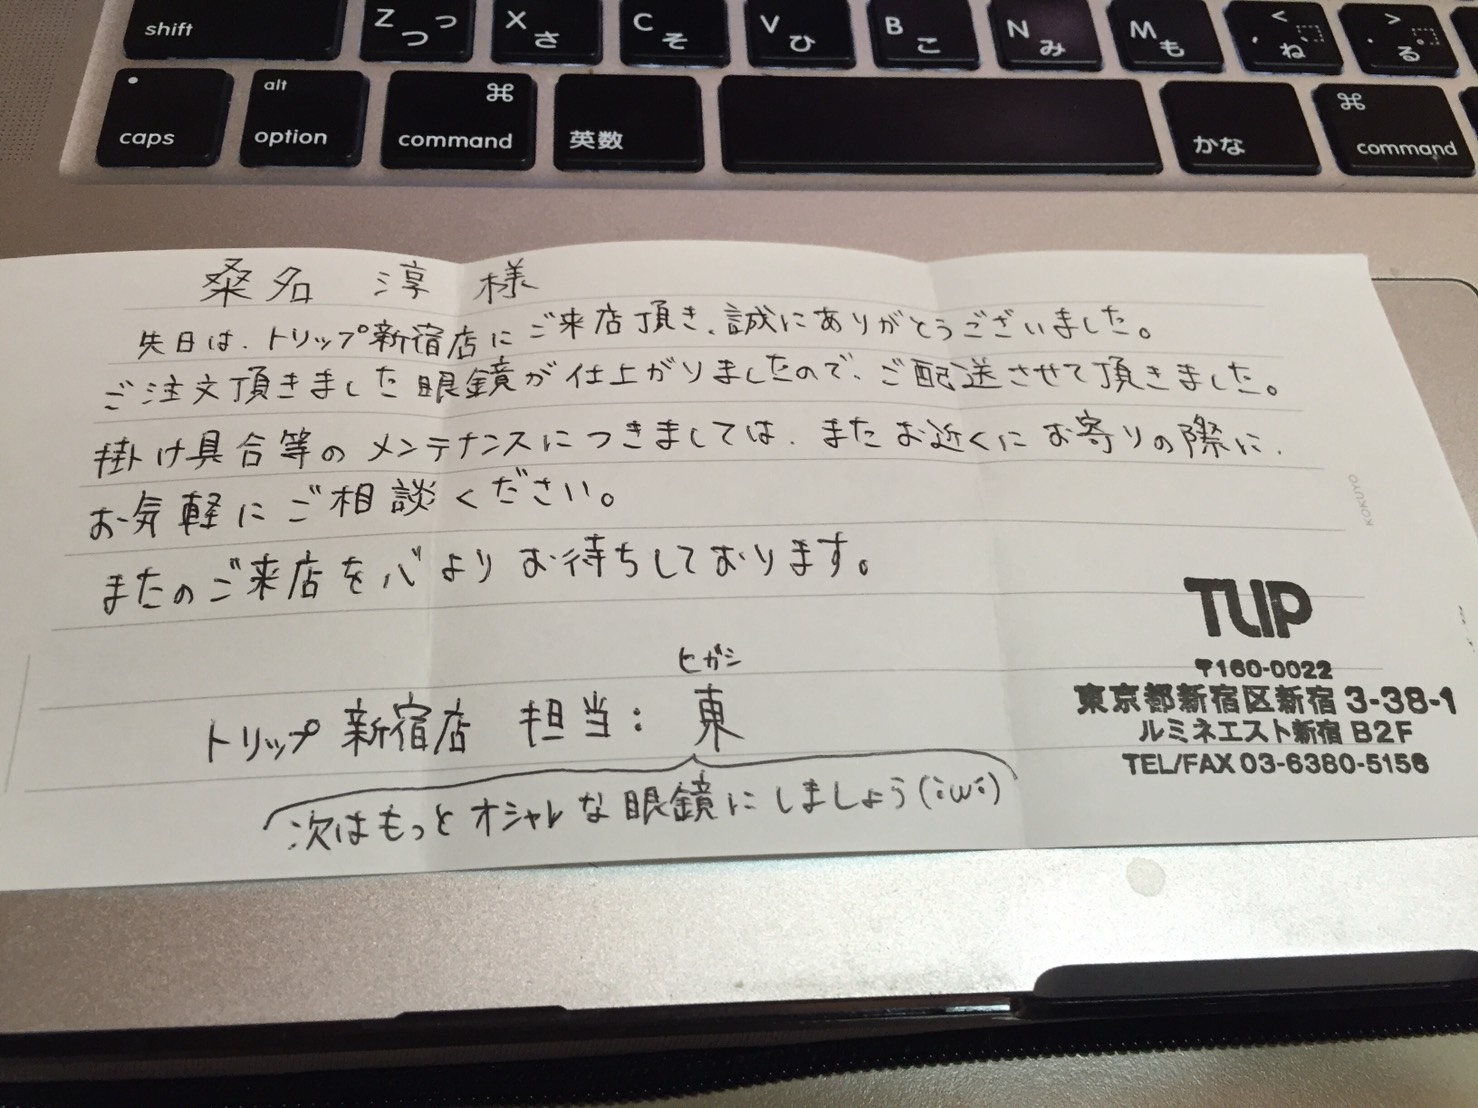 shift
Z つ っ
X さ
C そ
V ひ
B こ
N み
M も
< , ね
> . る 。
caps
alt
option
⌘
command
英数
かな
⌘
command
桑名 淳 様
先日は、トリップ新宿店にご来店頂き、誠にありがとうございました。
ご注文頂きました眼鏡が仕上がりましたので、ご配送させて頂きました。
掛け具合等のメンテナンスにつきましては、またお近くにお寄りの際に、
お気軽にご相談ください。
またのご来店を心よりお待ちしております。
KOKUYO
ヒガシ
トリップ 新宿店 担当:東
次はもっとオシャレな眼鏡にしましょう(:ω:)
TLIP
〒160-0022
東京都新宿区新宿3-38-1
ルミネエスト新宿B2F
TEL/FAX 03-6380-5156